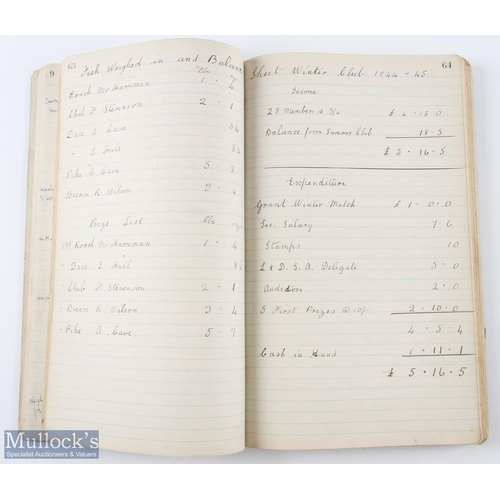 63
Fish Weighed in and Balan
lbs
Roach Mr Hamman 1 . 4
Chub F. Stevenson 2 . 1
Dace A Cave 8½
" S. Hull 8½
Pike A Cave 5 . 7
Bream R Wilson 3 . 4
Prize List lbs
1st Roach Mr Hamman 1 . 4
" Dace S Hull 8½
" Chub F. Stevenson 2 . 1
" Bream R. Wilson 3 . 4
" Pike A. Cave 5 . 7
64
Sheet Winter Club 1944-45
Income
28 Members @ 3/6 £ 4 . 18 . 0
Balance from Summer Club 18 . 5
£ 5 . 16 . 5
Expenditure
Grant Winter Match £ 1 . 0 . 0
Sec. Salary 7 . 6
Stamps 10
L & D. S. A. Delegate 5 . 0
Audition 2 . 0
5 First Prizes @ 10/- 2 . 10 . 0
4 . 5 . 4
Cash in Hand 1 . 11 . 1
£ 5 . 16 . 5
9
Mullock's
Specialist Auctioneers & Valuers